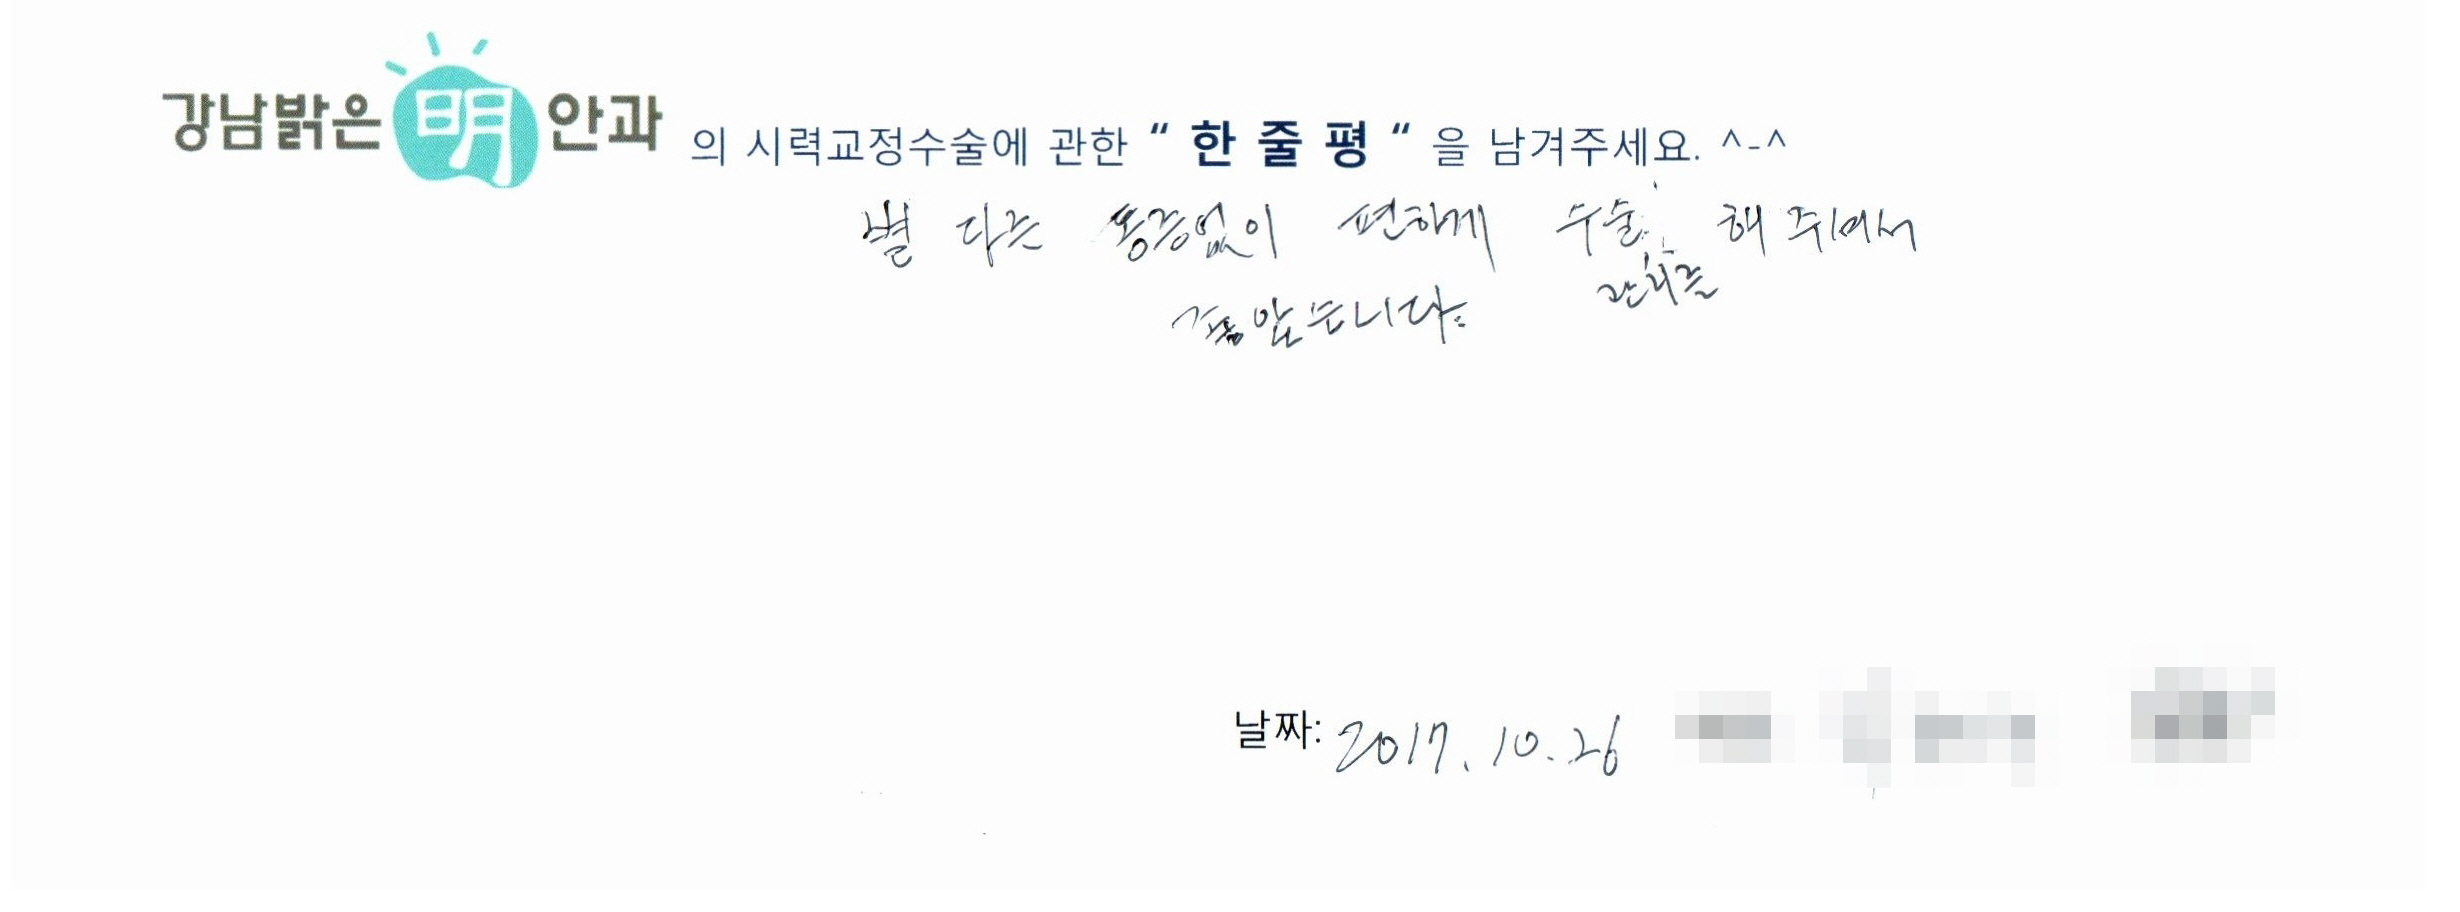 강남밝은 明 안과 의 시력교정수술에 관한 “ 한 줄 평 “ 을 남겨주세요. ^-^
별 다른 통증없이 편하게 수술 해 주셔서
관리를
날짜: 2017. 10. 26